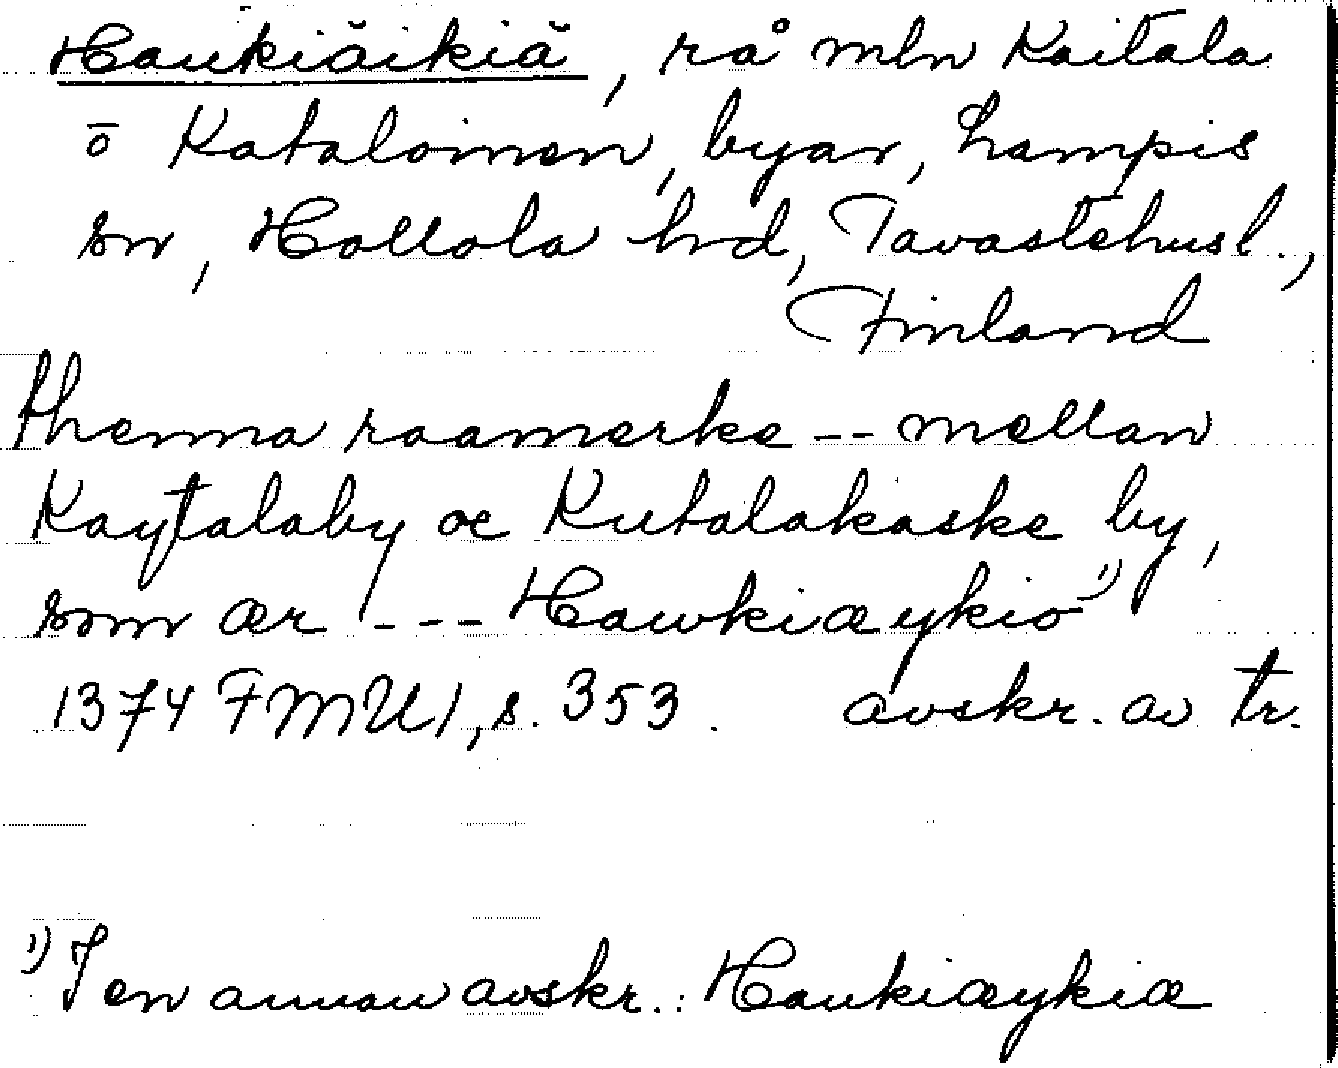 Haukiäikiä, rå mln Kaitala
ō Kataloinen, byar, Lampis
sn, Hollola hrd, Tavastehusl.,
Finland
thenna raamerke -- mellan
Kaytalaby oc Kutalakaske by,
som ær --- Hawkiæykiö 1)
1374 FMU 1, s. 353. avskr. av tr.
1) I en annan avskr.: Haukiæykiæ